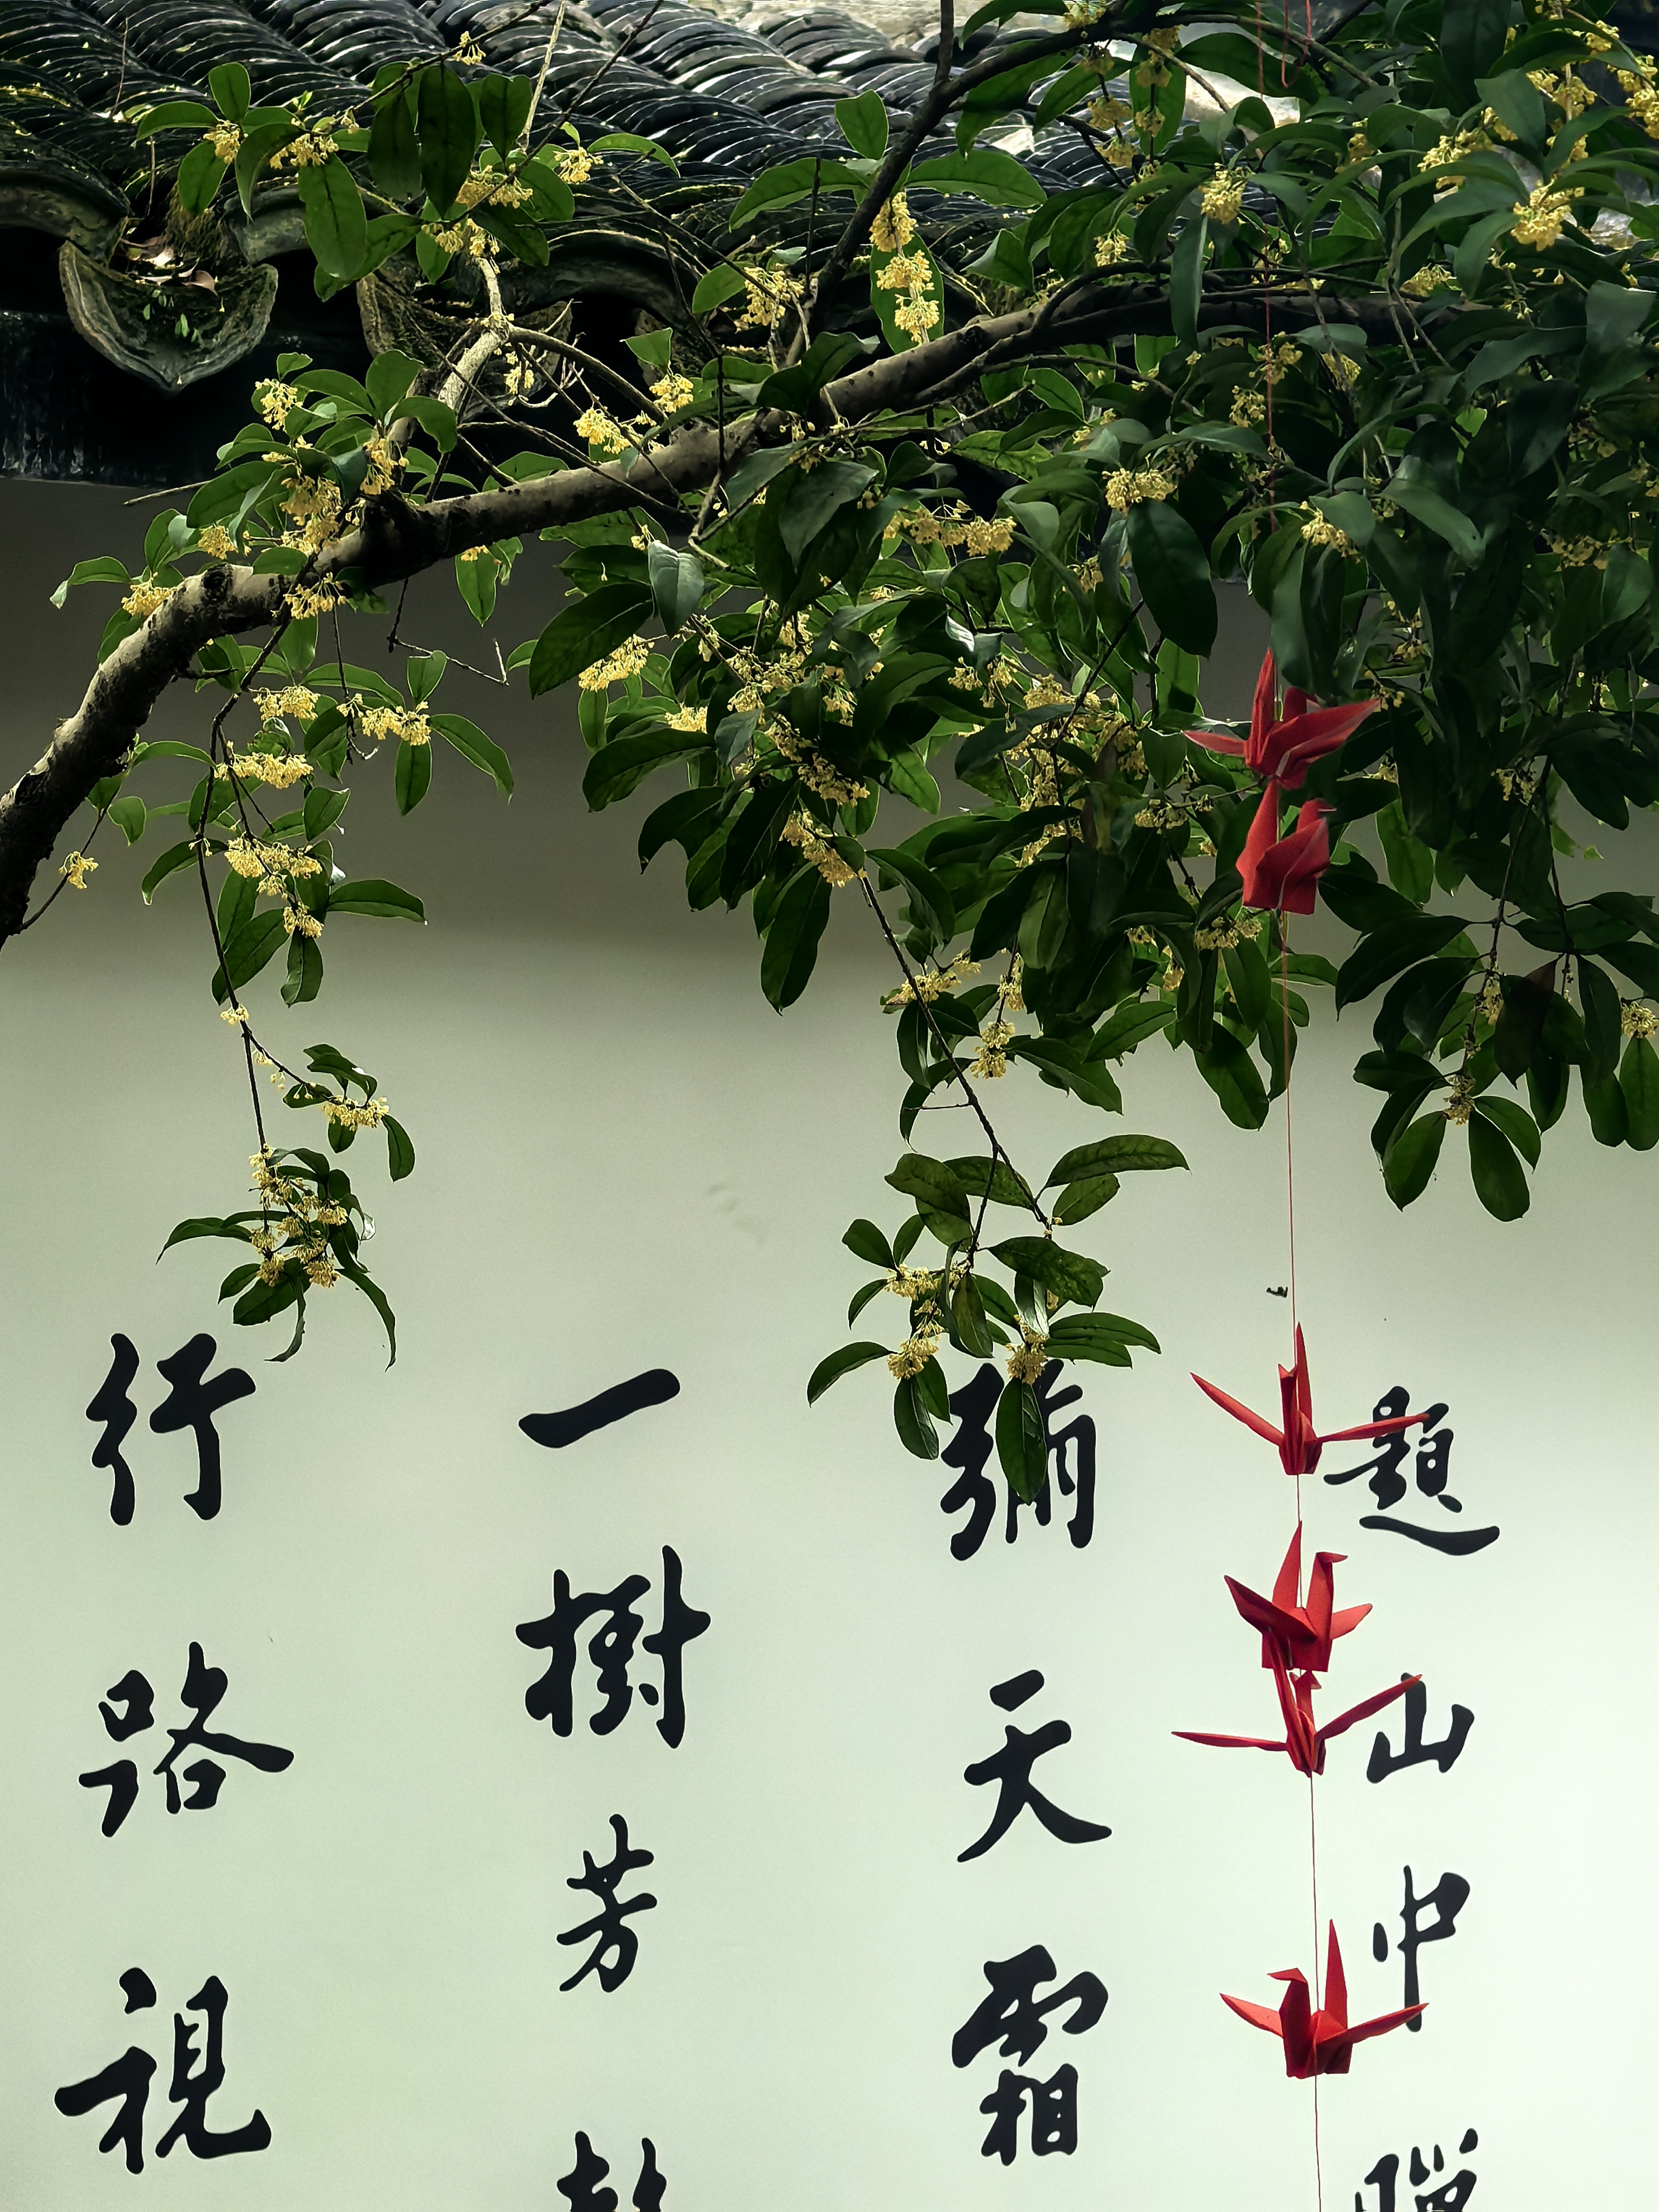 題山中臘
彌天霜
一樹芳
行路視